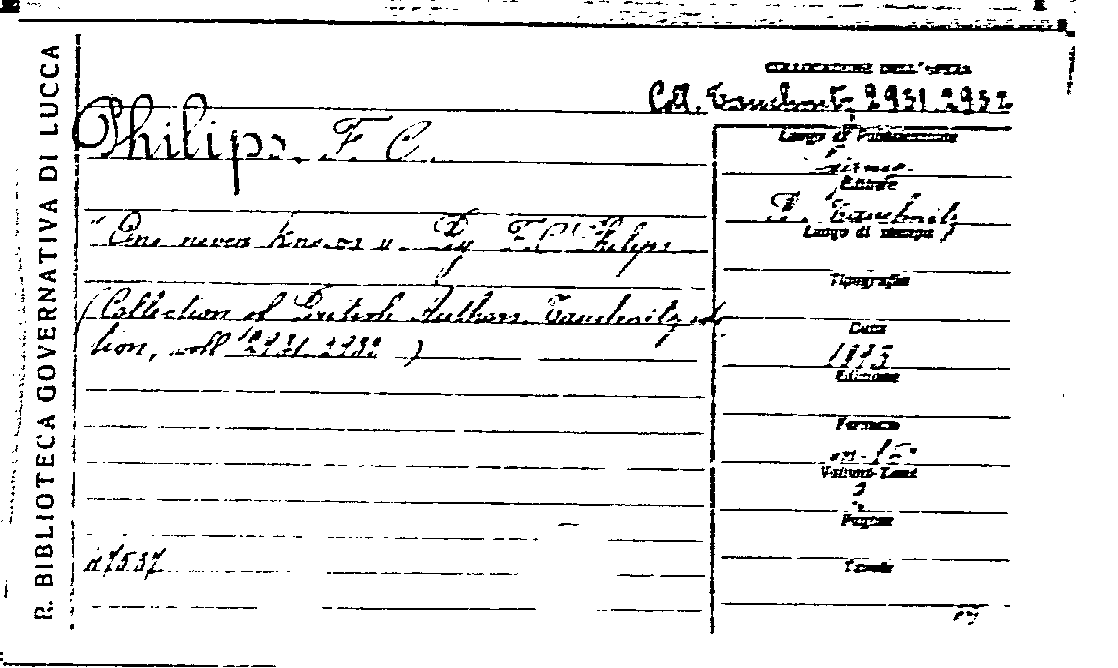 R. BIBLIOTECA GOVERNATIVA DI LUCCA
COLLOCAZIONE DELL'OPERA
Coll. Tauchnitz 2931.2932
Philips. F. C.
Luogo di Pubblicazione
Editore
B. Tauchnitz
Luogo di stampa
"One never knows". By F. C. Philips
Tipografia
(Collection of British Authors. Tauchnitz edi-
tion, voll 2931.2932)
Data
1893
Edizione
Formato
in-16°
Volumi-Tomi
2
Pagine
Tavole